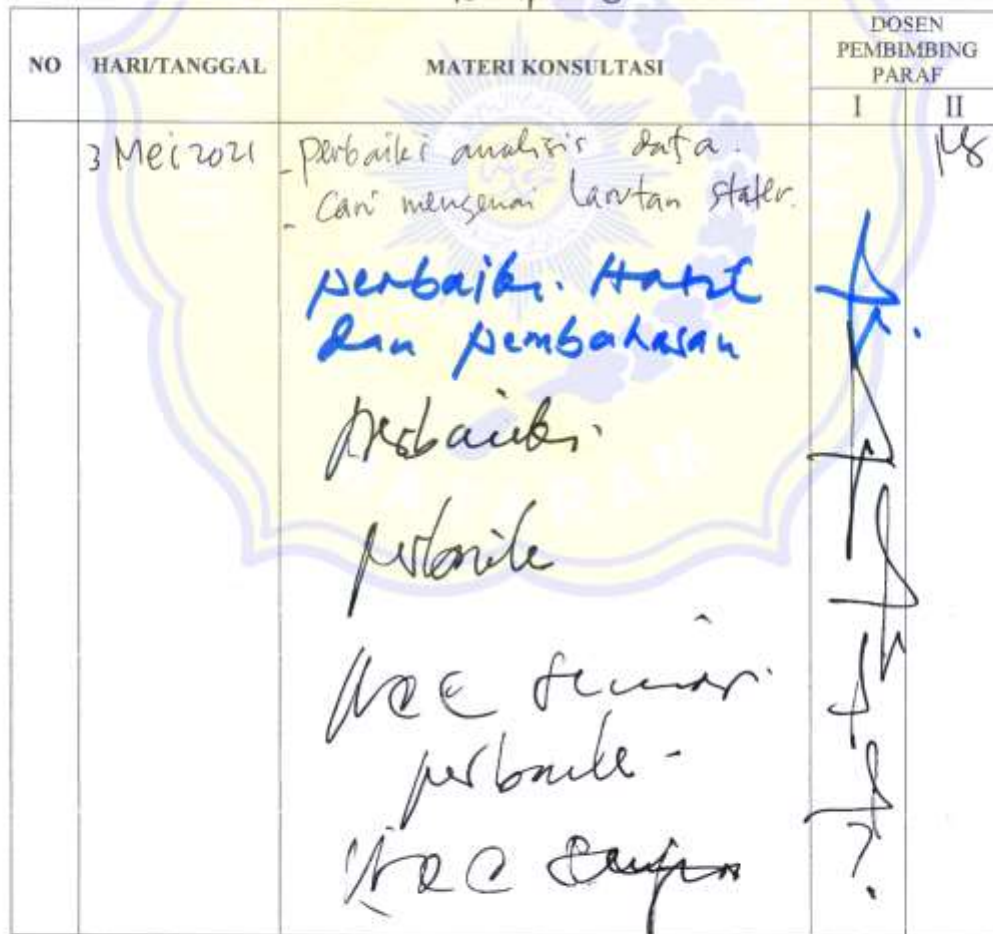 NO HARI/TANGGAL MATERI KONSULTASI DOSEN PEMBIMBING PARAF
I II
3 Mei 2021 - perbaiki analisis data.
- Cari mengenai larutan stater.
perbaiki Hasil
dan pembahasan
perbaiki
perbaiki
ACC
perbaiki -
ACC
MATARAM